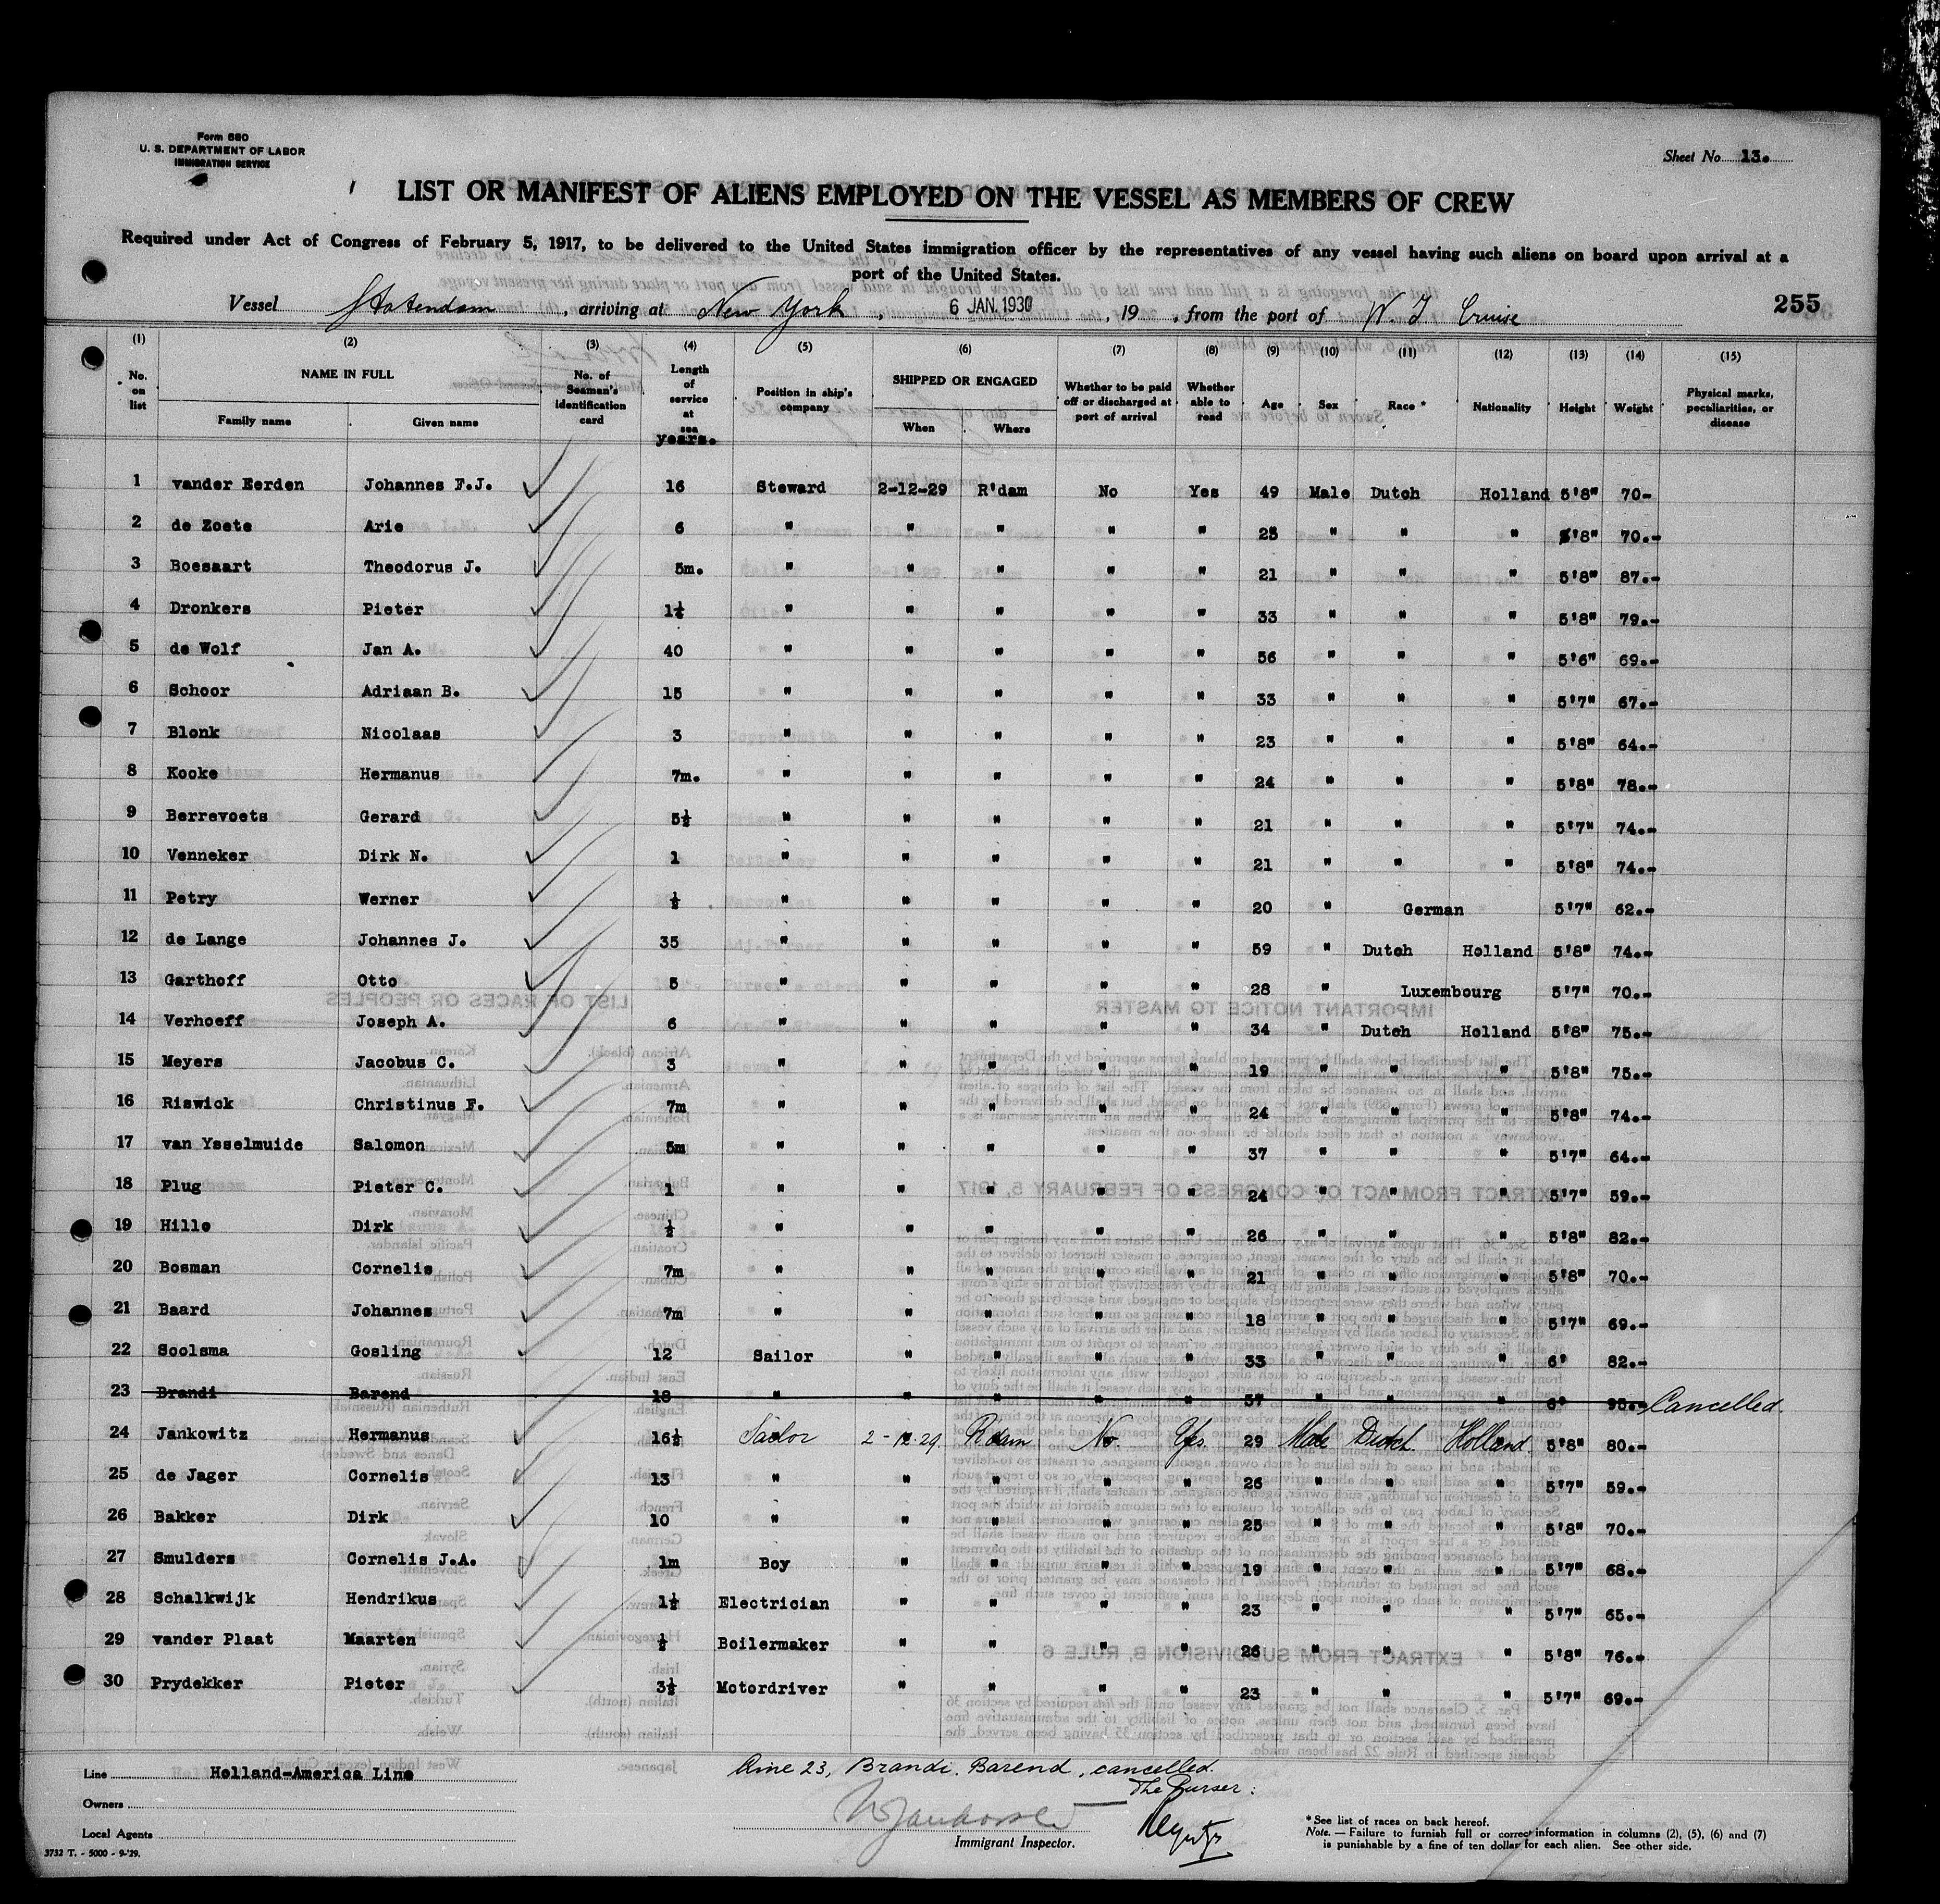 Form 680
U. S. DEPARTMENT OF LABOR
IMMIGRATION SERVICE
Sheet No. 13.
LIST OR MANIFEST OF ALIENS EMPLOYED ON THE VESSEL AS MEMBERS OF CREW
Required under Act of Congress of February 5, 1917, to be delivered to the United States immigration officer by the representatives of any vessel having such aliens on board upon arrival at a
port of the United States.
Vessel Statendam, arriving at New York, 6 JAN. 1930, 19 , from the port of W. I Cruise 255
(1) (2) (3) (4) (5) (6) (7) (8) (9) (10) (11) (12) (13) (14) (15)
No. on list NAME IN FULL Family name Given name No. of Seaman's identification card Length of service at sea years. Position in ship's company SHIPPED OR ENGAGED When Where Whether to be paid off or discharged at port of arrival Whether able to read Age Sex Race * Nationality Height Weight Physical marks, peculiarities, or disease
1 vander Eerden Johannes F.J. 16 Steward 2-12-29 R'dam No Yes 49 Male Dutch Holland 5'8" 70-
2 de Zoete Arie 6 " " " " " 25 " " " 5'8" 70.-
3 Boesaart Theodorus J. 5m. " " " " " 21 " " " 5'8" 87.-
4 Dronkers Pieter " " " " " 33 " " " 5'8" 79.-
5 de Wolf Jan A. 40 " " " " " 56 " " " 5'6" 69.-
6 Schoor Adriaan B. 15 " " " " " 33 " " " 5'7" 67.-
7 Blonk Nicolaas 3 " " " " " 23 " " " 5'8" 64.-
8 Kooke Hermanus 7m. " " " " " 24 " " " 5'8" 78.-
9 Berrevoets Gerard 5½ " " " " " 21 " " " 5'7" 74.-
10 Venneker Dirk N. 1 " " " " " 21 " " " 5'8" 74.-
11 Petry Werner ½ " " " " " 20 " German 5'7" 62.-
12 de Lange Johannes J. 35 " " " " " 59 " Dutch Holland 5'8" 74.-
13 Garthoff Otto 5 " " " " " 28 " Luxembourg 5'7" 70.-
14 Verhoeff Joseph A. 6 " " " " " 34 " Dutch Holland 5'8" 75.-
15 Meyers Jacobus C. 3 " " " " " 19 " " " 5'8" 75.-
16 Riswick Christinus F. 7m " " " " " 24 " " " 5'8" 74.-
17 van Ysselmuide Salomon 5m " " " " " 37 " " " 5'7" 64.-
18 Plug Pieter C. 1 " " " " " 24 " " " 5'7" 59.-
19 Hille Dirk ½ " " " " " 26 " " " 5'8" 82.-
20 Bosman Cornelis 7m " " " " " 21 " " " 5'8" 70.-
21 Baard Johannes 7m " " " " " 18 " " " 5'7" 69.-
22 Soolsma Gosling 12 Sailor " " " " 33 " " " 6" 82.-
23 Brandi Barend 18 " " " " " 57 " " " 6" 95.- Cancelled.
24 Jankowitz Hermanus 16½ Sailor 2-12-29. R'dam No. Yes. 29 Male Dutch. Holland. 5'8" 80.-
25 de Jager Cornelis 13 " " " " " 26 " " " 5'7" 59.-
26 Bakker Dirk 10 " " " " " 25 " " " 5'8" 70.-
27 Smulders Cornelis J.A. 1m Boy " " " " 19 " " " 5'7" 68.-
28 Schalkwijk Hendrikus 1½ Electrician " " " " 23 " " " 5'7" 65.-
29 vander Plaat Maarten ½ Boilermaker " " " " 26 " " " 5'8" 76.-
30 Prydekker Pieter 3½ Motordriver " " " " 23 " " " 5'7" 69.-
Line Holland-America Line
Line 23, Brandi, Barend, cancelled.
The Purser:
Owners
Local Agents
Immigrant Inspector.
* See list of races on back hereof.
Note. — Failure to furnish full or correct information in columns (2), (5), (6) and (7)
is punishable by a fine of ten dollar for each alien. See other side.
3732 T. - 5000 - 9-'29.